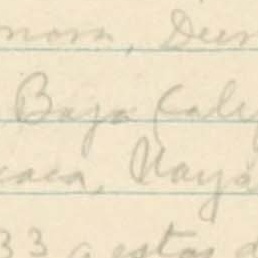 nora, Dur
Baja Calif
caca, Naya
33 a estas d